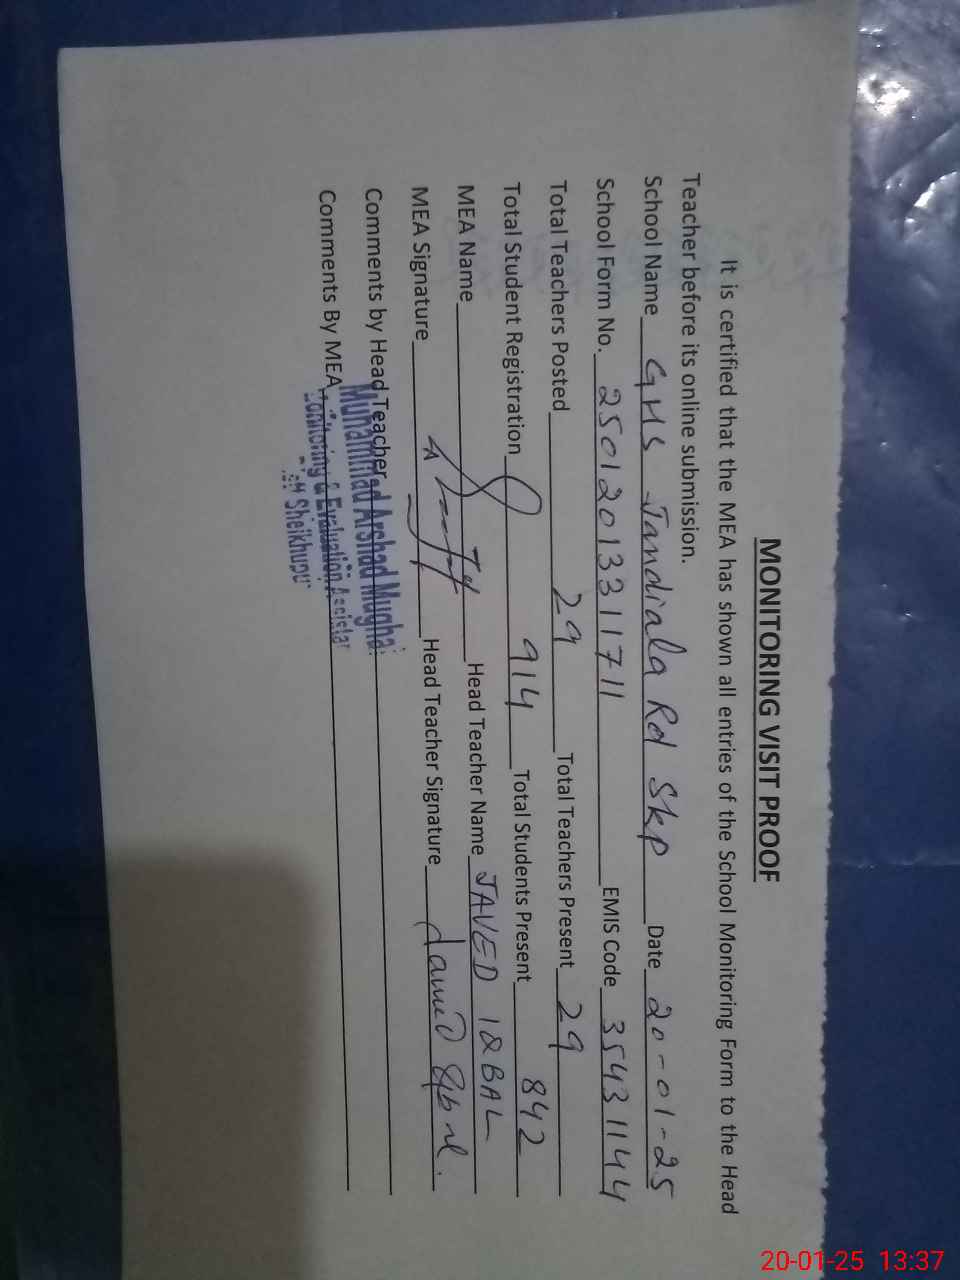 MONITORING VISIT PROOF
It is certified that the MEA has shown all entries of the School Monitoring Form to the Head
Teacher before its online submission.
School Name GHS Jandiala Rd Skp Date 20-01-25
School Form No. 25012013311711 EMIS Code 35431144
Total Teachers Posted 29 Total Teachers Present 29
Total Student Registration 914 Total Students Present 842
MEA Name Head Teacher Name JAVED IQBAL
MEA Signature Head Teacher Signature
Comments by Head Teacher
Comments By MEA
Muhammad Arshad Mughal
Monitoring & Evaluation Assistan
Sheikhupu
20-01-25 13:37